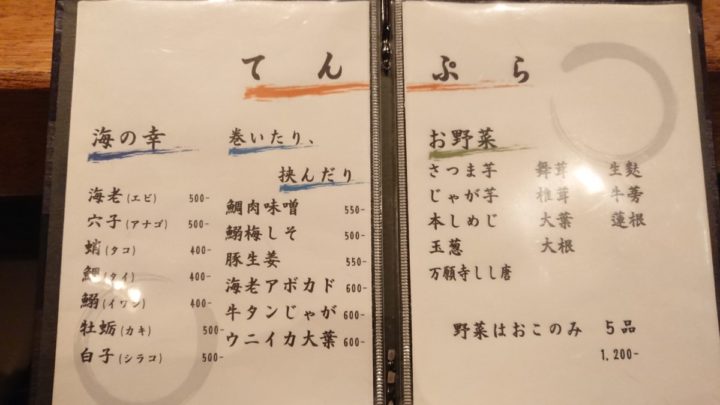 てんぷら
海の幸
海老(エビ) 500-
穴子(アナゴ) 500-
蛸(タコ) 400-
鯛(タイ) 400-
鰯(イワシ) 400-
牡蛎(カキ) 500-
白子(シラコ) 500-
巻いたり、
挟んだり
鯛肉味噌 550-
鰯梅しそ 500-
豚生姜 550-
海老アボカド 600-
牛タンじゃが 600-
ウニイカ大葉 600-
お野菜
さつま芋 舞茸 生麩
じゃが芋 椎茸 牛蒡
本しめじ 大葉 蓮根
玉葱 大根
万願寺しし唐
野菜はおこのみ 5品
1,200-